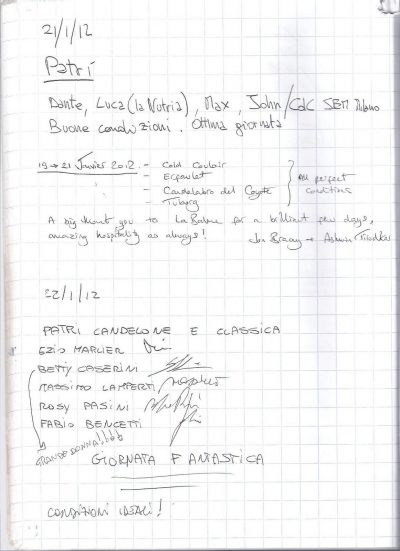 21/1/12
Patrí
Dante, Luca (la Nutria), Max, John / CdC SEM Milano
Buone condizioni. Ottima giornata
19 → 21 Janvier 2012. - Cold Couloir
- Ecfoulet
- Candelabro del Coyote
- Tuborg
All perfect
conditions
A big thank you to La Barme for a brilliant few days,
amazing hospitality as always!
Jon Bracey +
22/1/12
PATRI CANDELONE E CLASSICA
EZIO MARLIER
BETTY CASERINI
MASSIMO LAMPERTI
ROSY PASINI
FABIO BENCETTI
GRANDE DONNA!!
GIORNATA FANTASTICA
CONDIZIONI IDEALI!